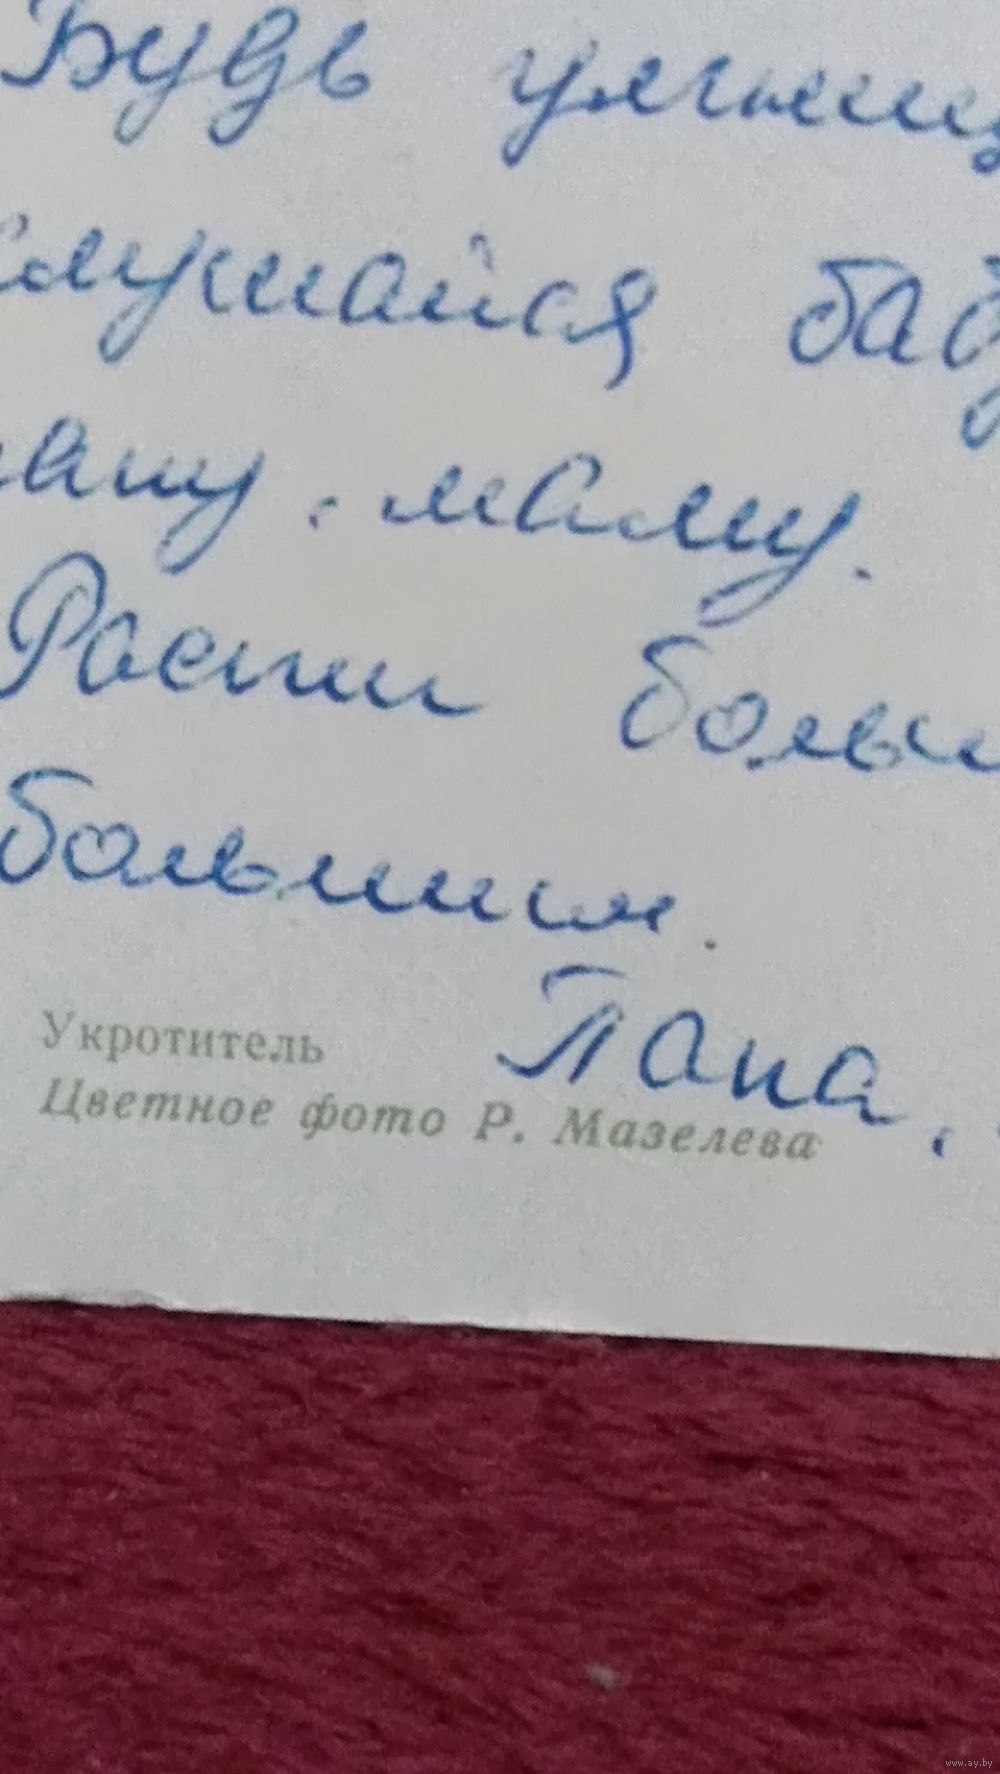 Будь умниц
слушайся баб
машу, маму.
Расти больш
большим.
Папа.
Укротитель
Цветное фото Р. Мазелева
www.ay.by